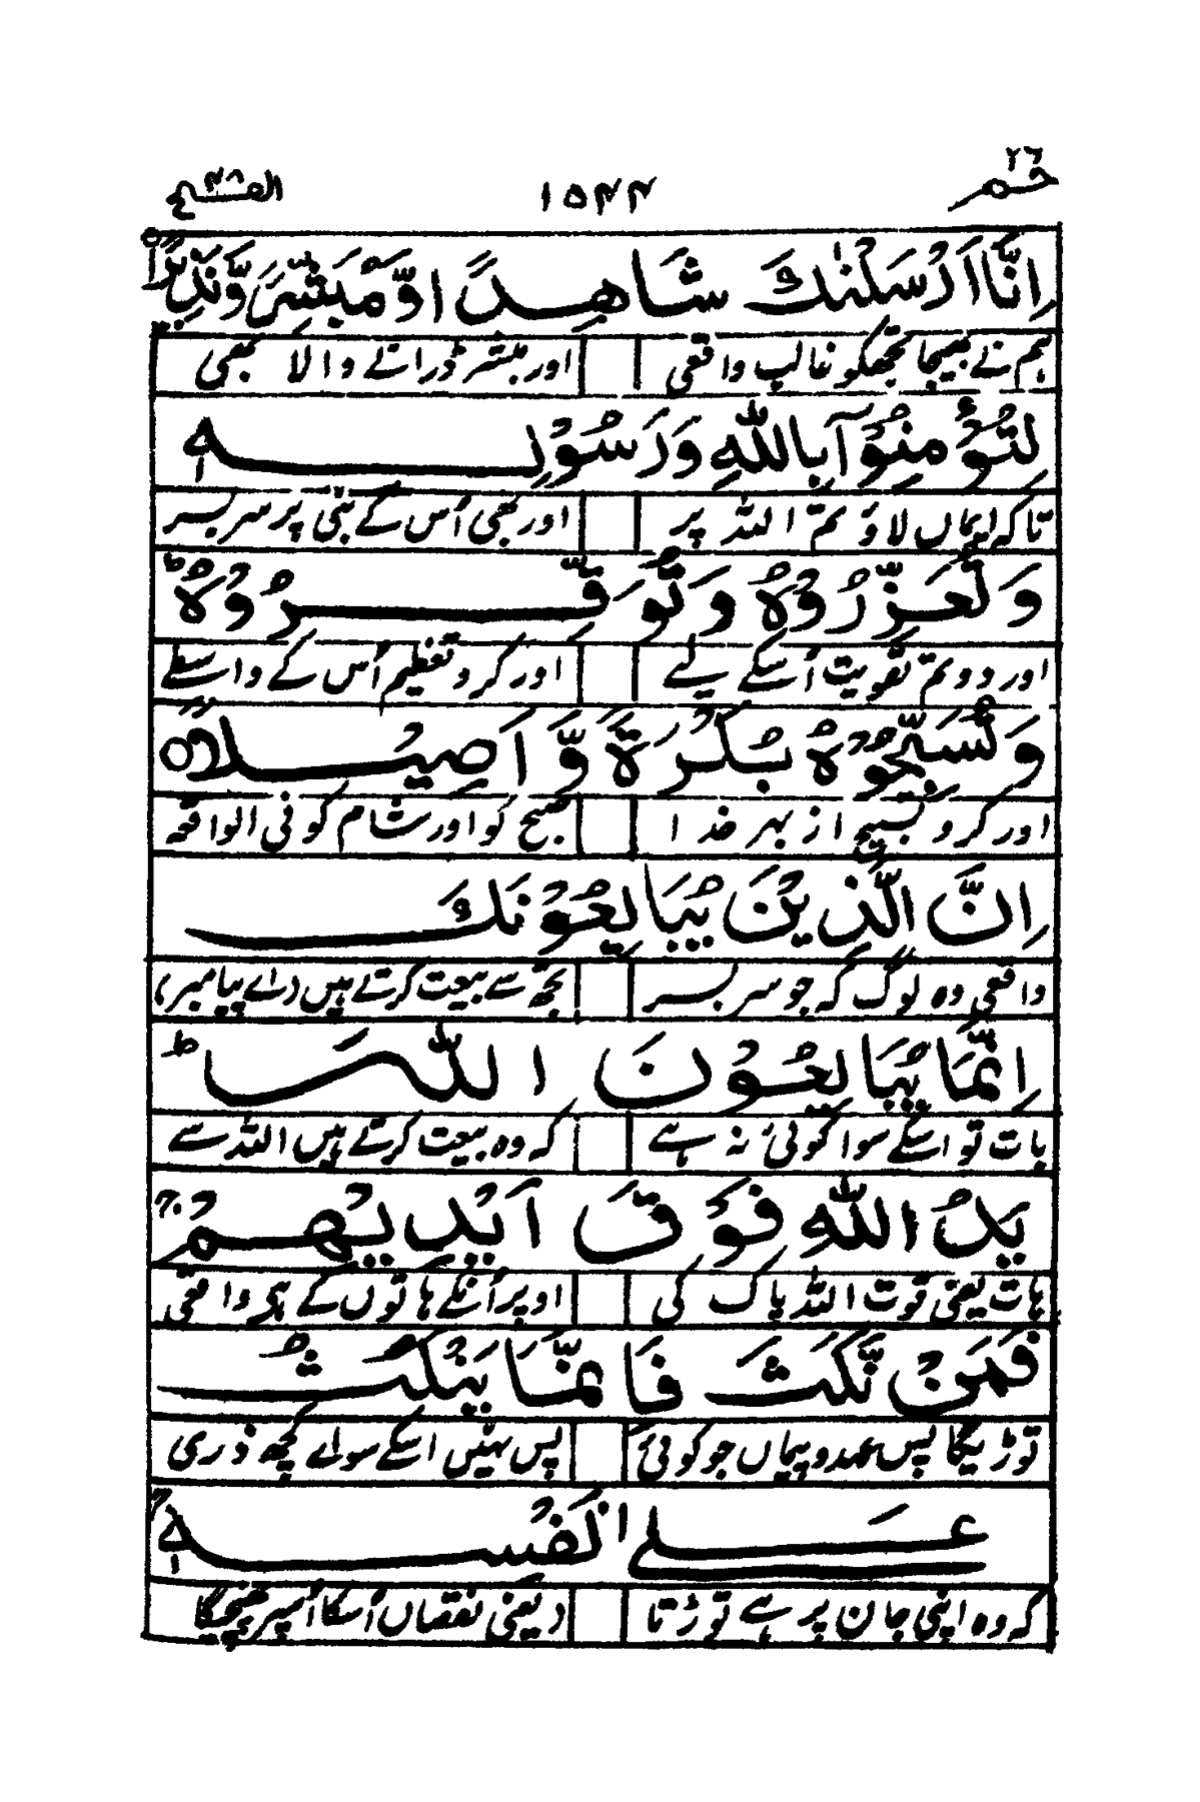 حٰم ٢٦ ١٥٤٤ الفتح ٤٨
اِنَّاۤ اَرْسَلْنٰكَ شَاهِدًا وَّمُبَشِّرًا وَّنَذِيْرًاۙ
ہم نے بھیجا تجھکو غالب واقعی اور مبشر ڈرانے والا بھی
لِتُؤْمِنُوْا بِاللّٰهِ وَرَسُوْلِهٖ
تاکہ ایماں لاؤ تم اللہ پر اور بھی اُس کے نبی پر سربسر
وَتُعَزِّرُوْهُ وَتُوَقِّرُوْهُؕ
اور دو تم تقویت اُسکے لیے اور کرو تعظیم اُس کے واسطے
وَتُسَبِّحُوْهُ بُكْرَةً وَّاَصِيْلًا
اور کرو تسبیح از بہر خدا صبح کو اور شام کو فی الواقعہ
اِنَّ الَّذِيْنَ يُبَايِعُوْنَكَ
واقعی وہ لوگ کہ جو سربسر تجھ سے بیعت کرتے ہیں (اے پیامبر)
اِنَّمَا يُبَايِعُوْنَ اللّٰهَؕ
بات تو اسکے سوا کوئی نہ ہے کہ وہ بیعت کرتے ہیں اللہ سے
يَدُ اللّٰهِ فَوْقَ اَيْدِيْهِمْۚ
ہات یعنی قوت اللہ پاک کی اوپر اُنکے ہاتوں کے ہی واقعی
فَمَنْ نَّكَثَ فَاِنَّمَا يَنْكُثُ
توڑیگا پس عہد و پیماں جو کوئی پس نہیں اسکے سواے کچھ ذری
عَلٰى نَفْسِهٖۚ
کہ وہ اپنی جان پر ہے توڑتا (یعنی نقصاں اُسکا اُسپر پہنچیگا